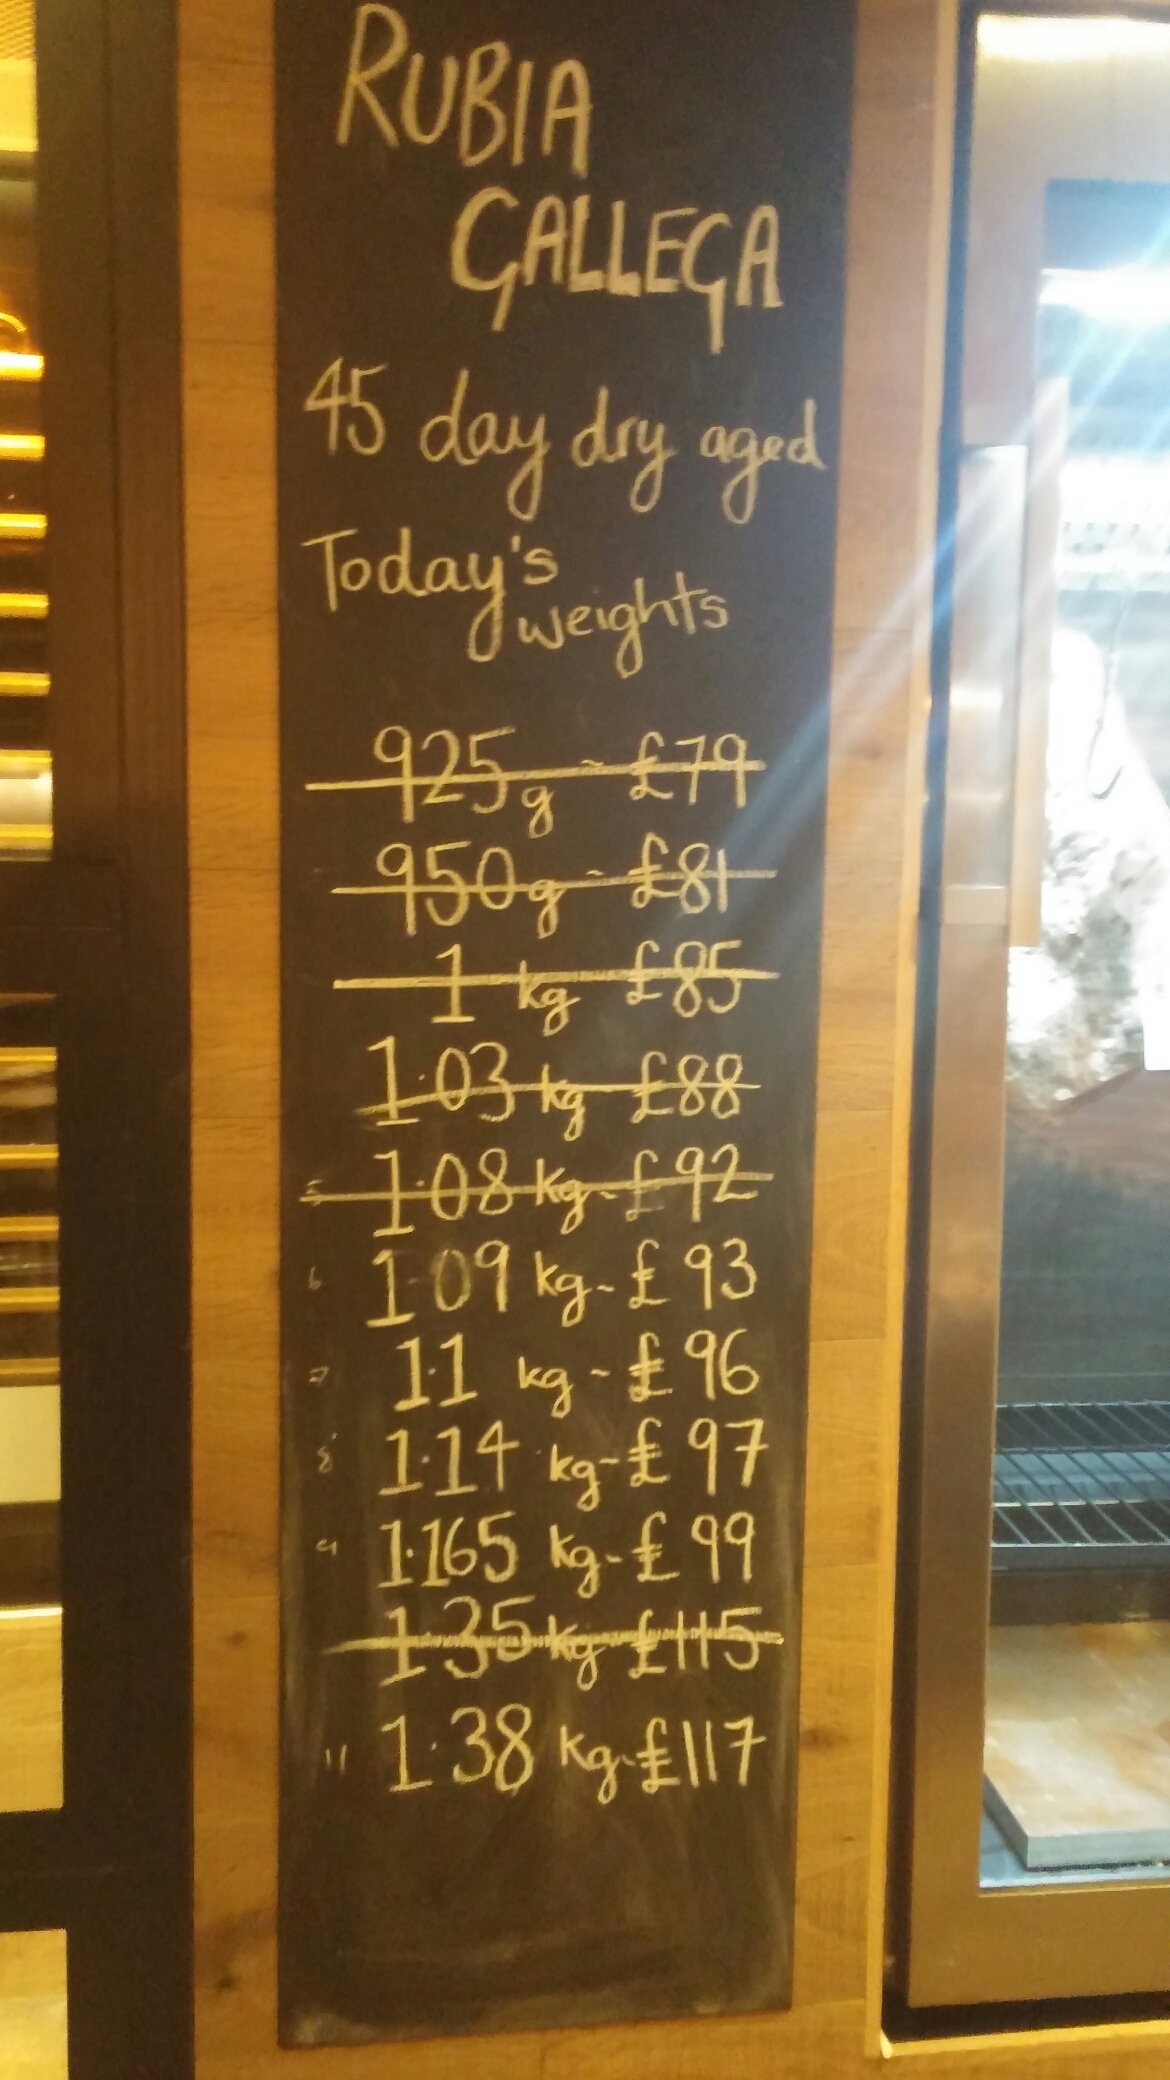 RUBIA
GALLEGA
45 day dry aged
Today's
weights
925g - £79
950g - £81
1 kg £85
1.03 kg £88
5 1.08 kg - £92
6 1.09 kg - £93
7 1.1 kg - £96
8 1.14 kg - £97
9 1.165 kg - £99
1.35 kg - £115
11 1.38 kg - £117